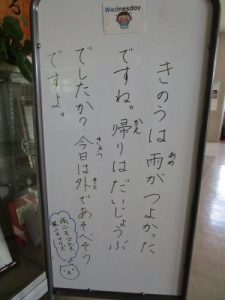 Wednesday
きのうは雨がつよかった
あめ
ですね。帰りはだいじょうぶ
かえ
でしたか？今日は外であそべそう
きょう
そと
ですよ。